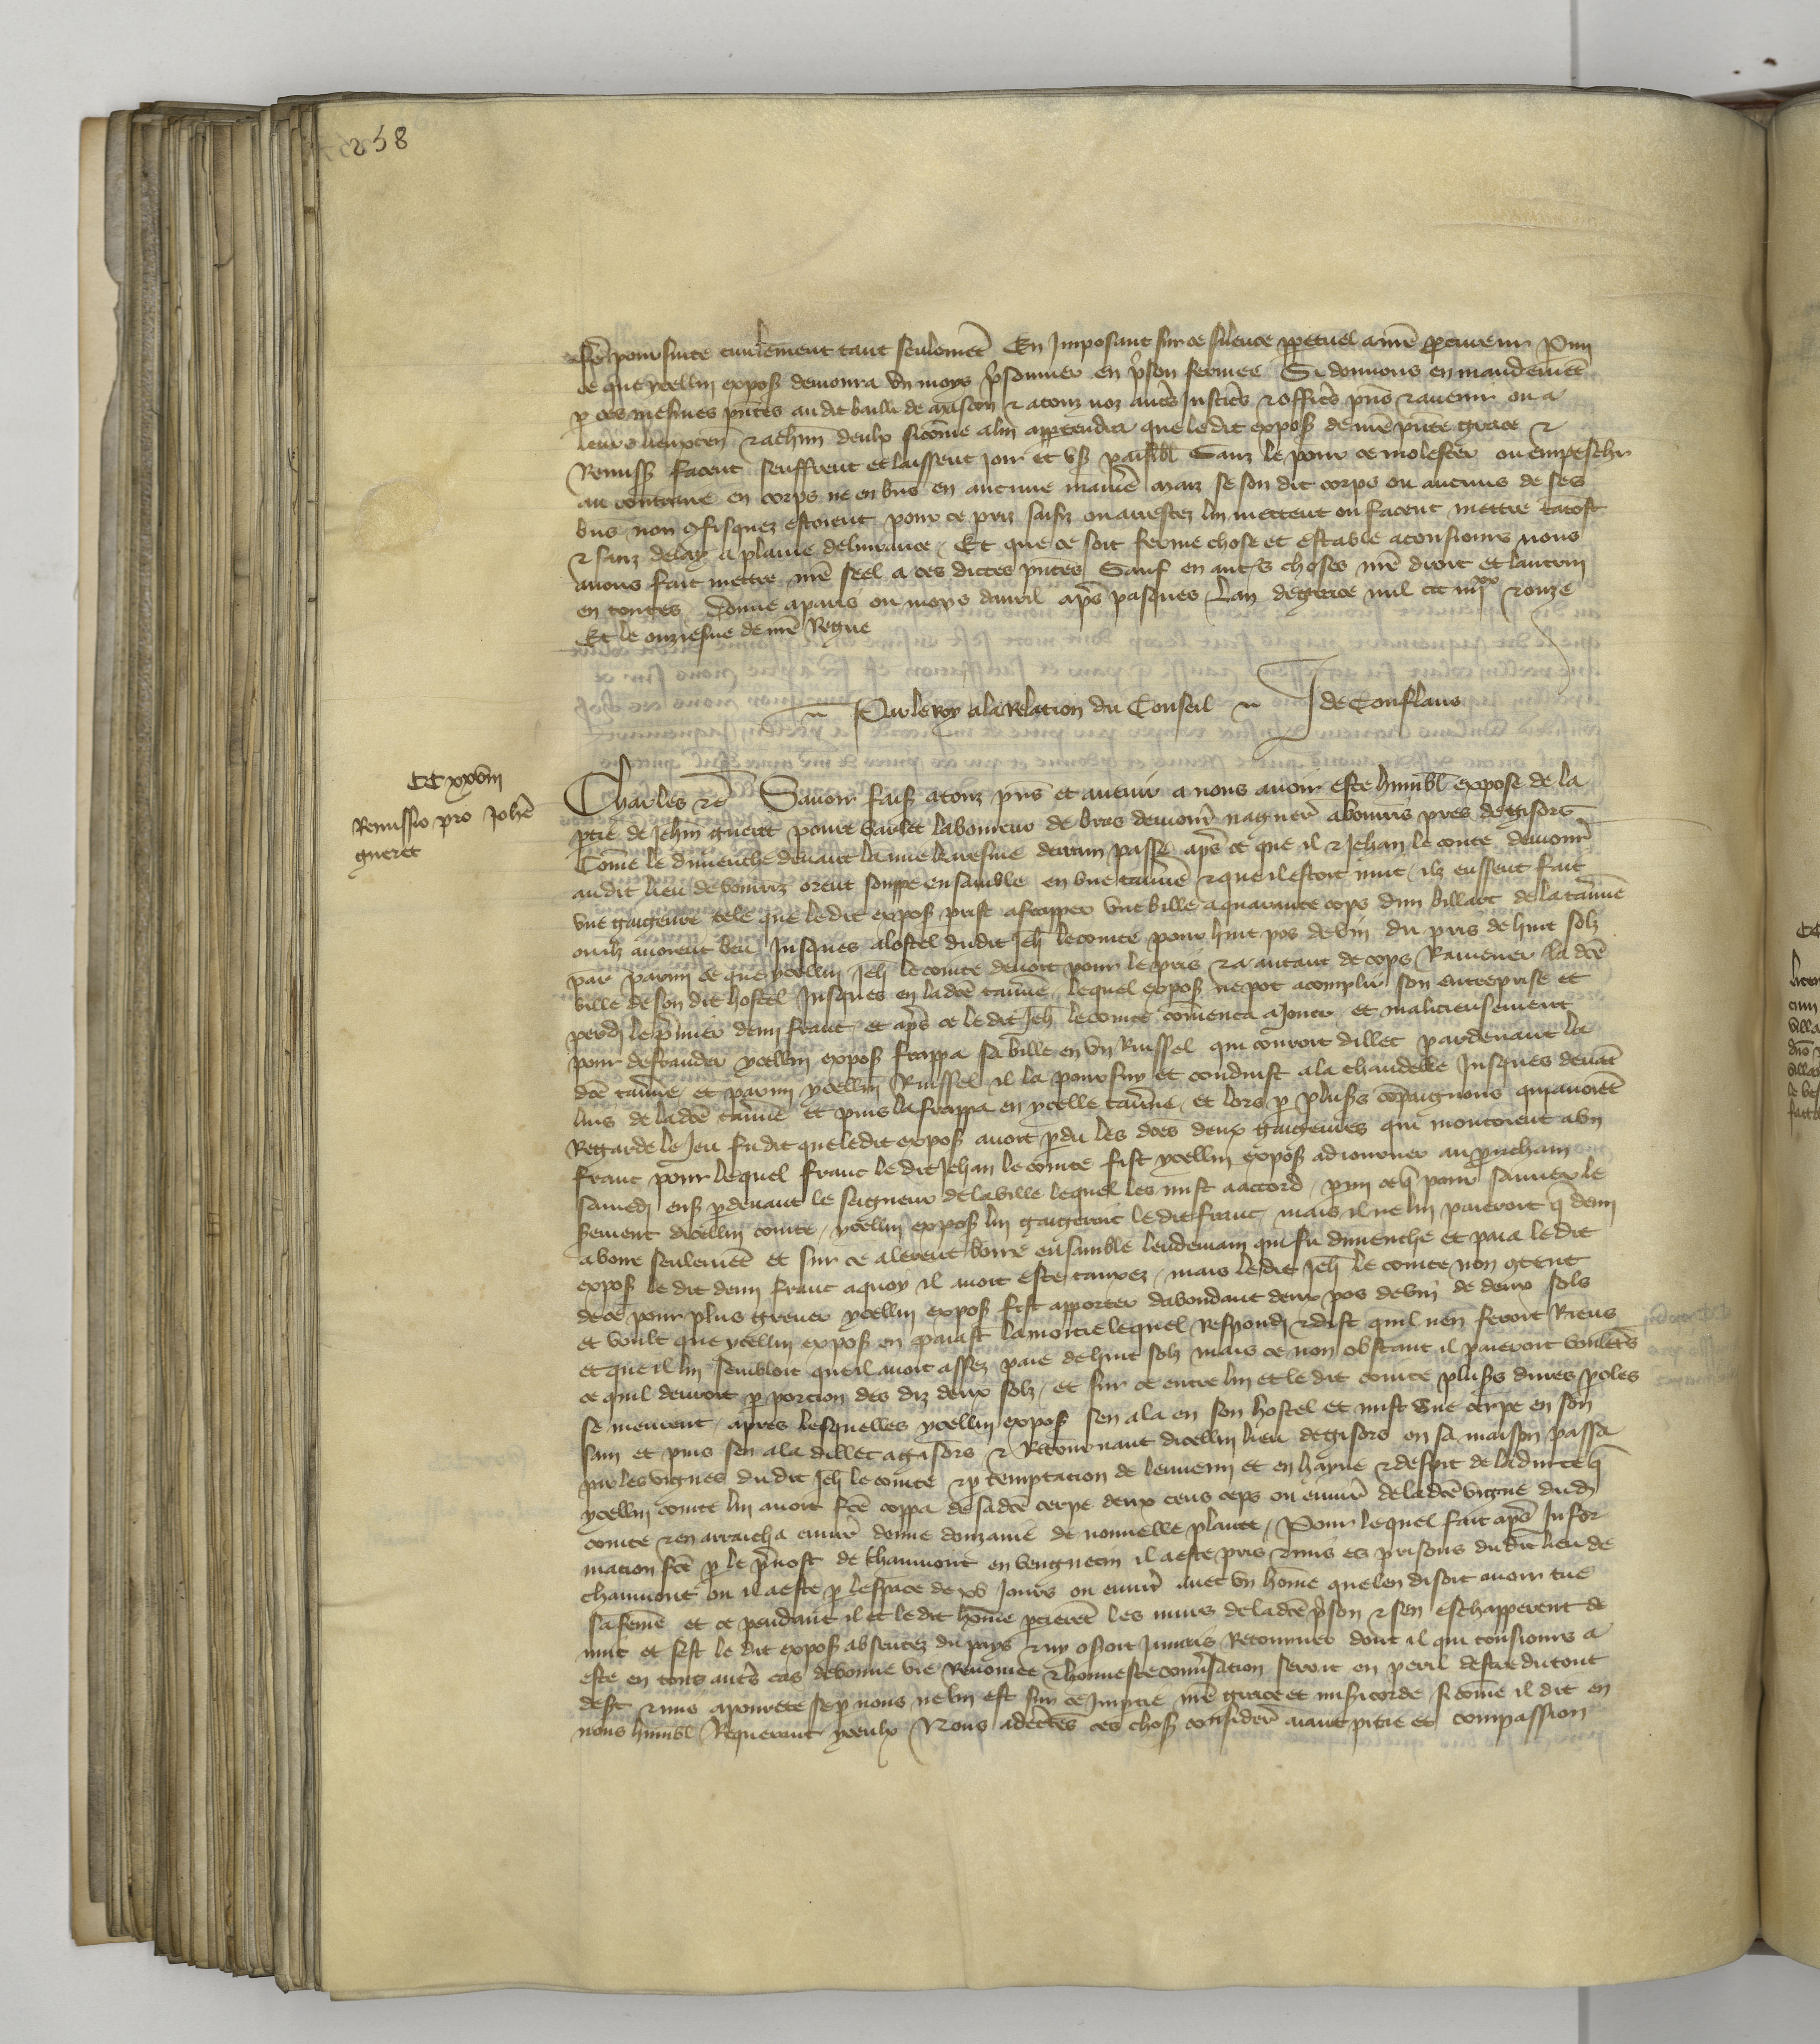 258
Fe poursuite civilement tant seulement En Imposant sur ce silence perpetuel a nre procureur Parmi
ce que ycellui expos demoura un moys prisonnier en prison fermee Si donnons en mandement
par ces mesmes pntes au dit bailli de mascon et a touz noz autres Justiciers et officiers pns et avenir ou a
leurs lieuxten et a chun deulx sicome a lui appartendra que le dit expos de nre pnte grace et
Remiss facent seuffrent et laissent joir et us paisibl Sanz le pour ce molester ou empeschr
au contraire en corps ne en bns en aucune maniere maiz se son dit corps ou aucuns de ses
bns non confisquez estoient pour ce priz saisiz ou arrestez lui mettent ou facent mettre tatost
et sanz delay a plaine delivrance Et que ce soit ferme chose et estable a tousjours nous
avons fait mettre nre seel a ces dictes pntes Sauf en autres choses nre droit et lautrui
en toutes Donne a paris ou moys davril apres pasques Lan de grace mil ccc iiiixx et onze
Et le onziesme de nre Regne
Par le Roy a la Relacion du Conseil J de Conflans
CC xxviii
Remissio pro Johe
gueret
Charles etc Savoir faiz a touz pns et avenir a nous avoir este humbl expose de la
partie de Jehan gueret povre varlet laboureur de bras demour naguer a bouris pres de gisors
Come le dimenche devant la mie karesme derrain passe apres ce que il et Jehan le conte demour
au dit lieu de bouriz orent souppe ensamble en une taverne et que il estoit nuit ilz eussent fait
une gaigeure tele que le dit expos prist a frapper une bille a quarante cops dun billart de la taverne
ou ilz avoient beu Jusques a lostel dudit Jeh le conte pour huit pos de vin du pris de huit solz
par Parmi ce que ycellui Jeh le conte devoit pour le pris et a autant de cops Ramener la dce
bille de son dit hostel Jusques en la dce taverne lequel expos ne pot acomplir son entreprise et
perdi le premier demi franc et apres ce le dit Jeh le conte comenca a Jouer et malicieusement
pour defrauder ycellui expos frappa sa bille en un Ruissel qui couroit dillec pardevant la
dce taverne et parmi ycellui Ruissel il la poursuy et conduist a la chandelle Jusques devat
luis de la dce taverne et puis la frappa en ycelle taverne et lors par plus compaignons qui avoiet
Regarde le Jeu fu dit que le dit expos avoit perdu les dces deux gaigeures qui montoient a un
franc pour lequel franc le dit Jehan le conte fist ycellui expos adiourner au prouchain
samedi ens pardevant le seigneur de la ville lequel les mist a accord parmi ce q pour sauver le
serement dicellui conte ycellui expos lui gaigeroit le dit franc mais il ne lui paieroit q demi
a boire seulement et sur ce alerent boire ensamble lendemain qui fu dimenche et paia le dit
expos le dit demi franc a quoy il avoit este tauxez mais le dit Jeh le conte non content
de ce pour plus grever ycellui expos fist apporter dabondant deux pos de vin de deux sols
et voult que ycellui expos en paiast la moitie lequel Respondi et dist quil nen feroit Riens
et que il lui sembloit que il avoit assez paie de huit solz mais ce non obstant il paieroit voulentiers
ce quil devroit par porcion des diz deux solz et sur ce entre lui et le dit conte plus diverses paroles
se meurent apres lesquelles ycellui expos sen ala en son hostel et mist une serpe en son
sain et puis sen ala dillec a gisors et Retournant dicellui lieu de gisors en sa maison passa
par les vignes du dit Jeh le conte et par temptacion de lennemi et en hayne et despit de la durte q
ycellui conte lui avoit fce coppa de sa dce serpe deux cens ceps ou environ de la dce vigne dudi
conte et en arracha environ demie douzaine de nouvelle plante Pour lequel fait apres Infor
macion fce par le prevost de Chaumont en veuguecin il a este pris et mis es prisons du dit lieu de
chaumont ou il a este par lespace de xv Jours ou environ avec un home que len disoit avoir tue
sa feme et ce pendant il et le dit home percerent les murs de la dce prison et sen eschapperent de
nuit et sest le dit expos absentez du pays et ny oseroit Jamais Retourner dont il qui tousiours a
este en tous autres cas de bonne vie Renomee et honneste conversation seroit en peril destre du tout
desert et mis a povrete se par nous ne lui est sur ce Impartie nre grace et misericorde si come il dit en
nous humbl Requerant ycelle Nous adecertes ces choses consider aiant pitie et compassion